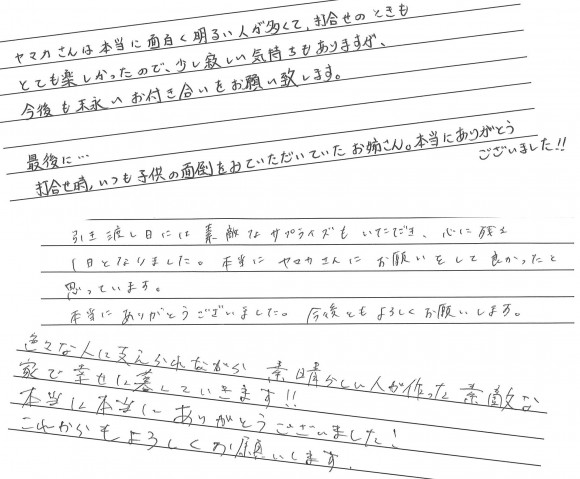 ヤマカさんは本当に面白く明るい人が多くて、打合せのときも
とても楽しかったので、少し寂しい気持ちもありますが、
今後も末永いお付き合いをお願い致します。
最後に…
打合せ時、いつも子供の面倒をみていただいていたお姉さん。本当にありがとう
ございました!!
引き渡し日には素敵なサプライズもいただき、心に残る
1日となりました。本当にヤマカさんにお願いをして良かったと
思っています。
本当にありがとうございました。今後ともよろしくお願いします。
色々な人に支えられながら 素晴らしい人が作った素敵な
家で幸せに暮していきます!!
本当に本当にありがとうございました!
これからもよろしくお願いします.